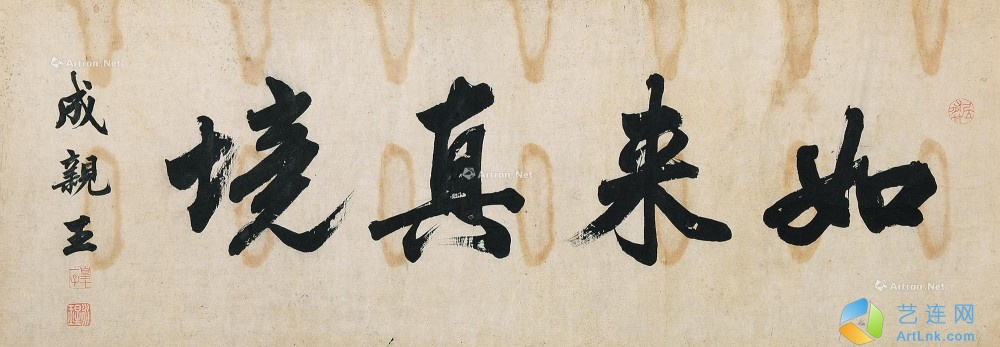 如来真境
成親王
Artron.Net
Artron.Net
Artron.Net
艺连网
ArtLnk.com